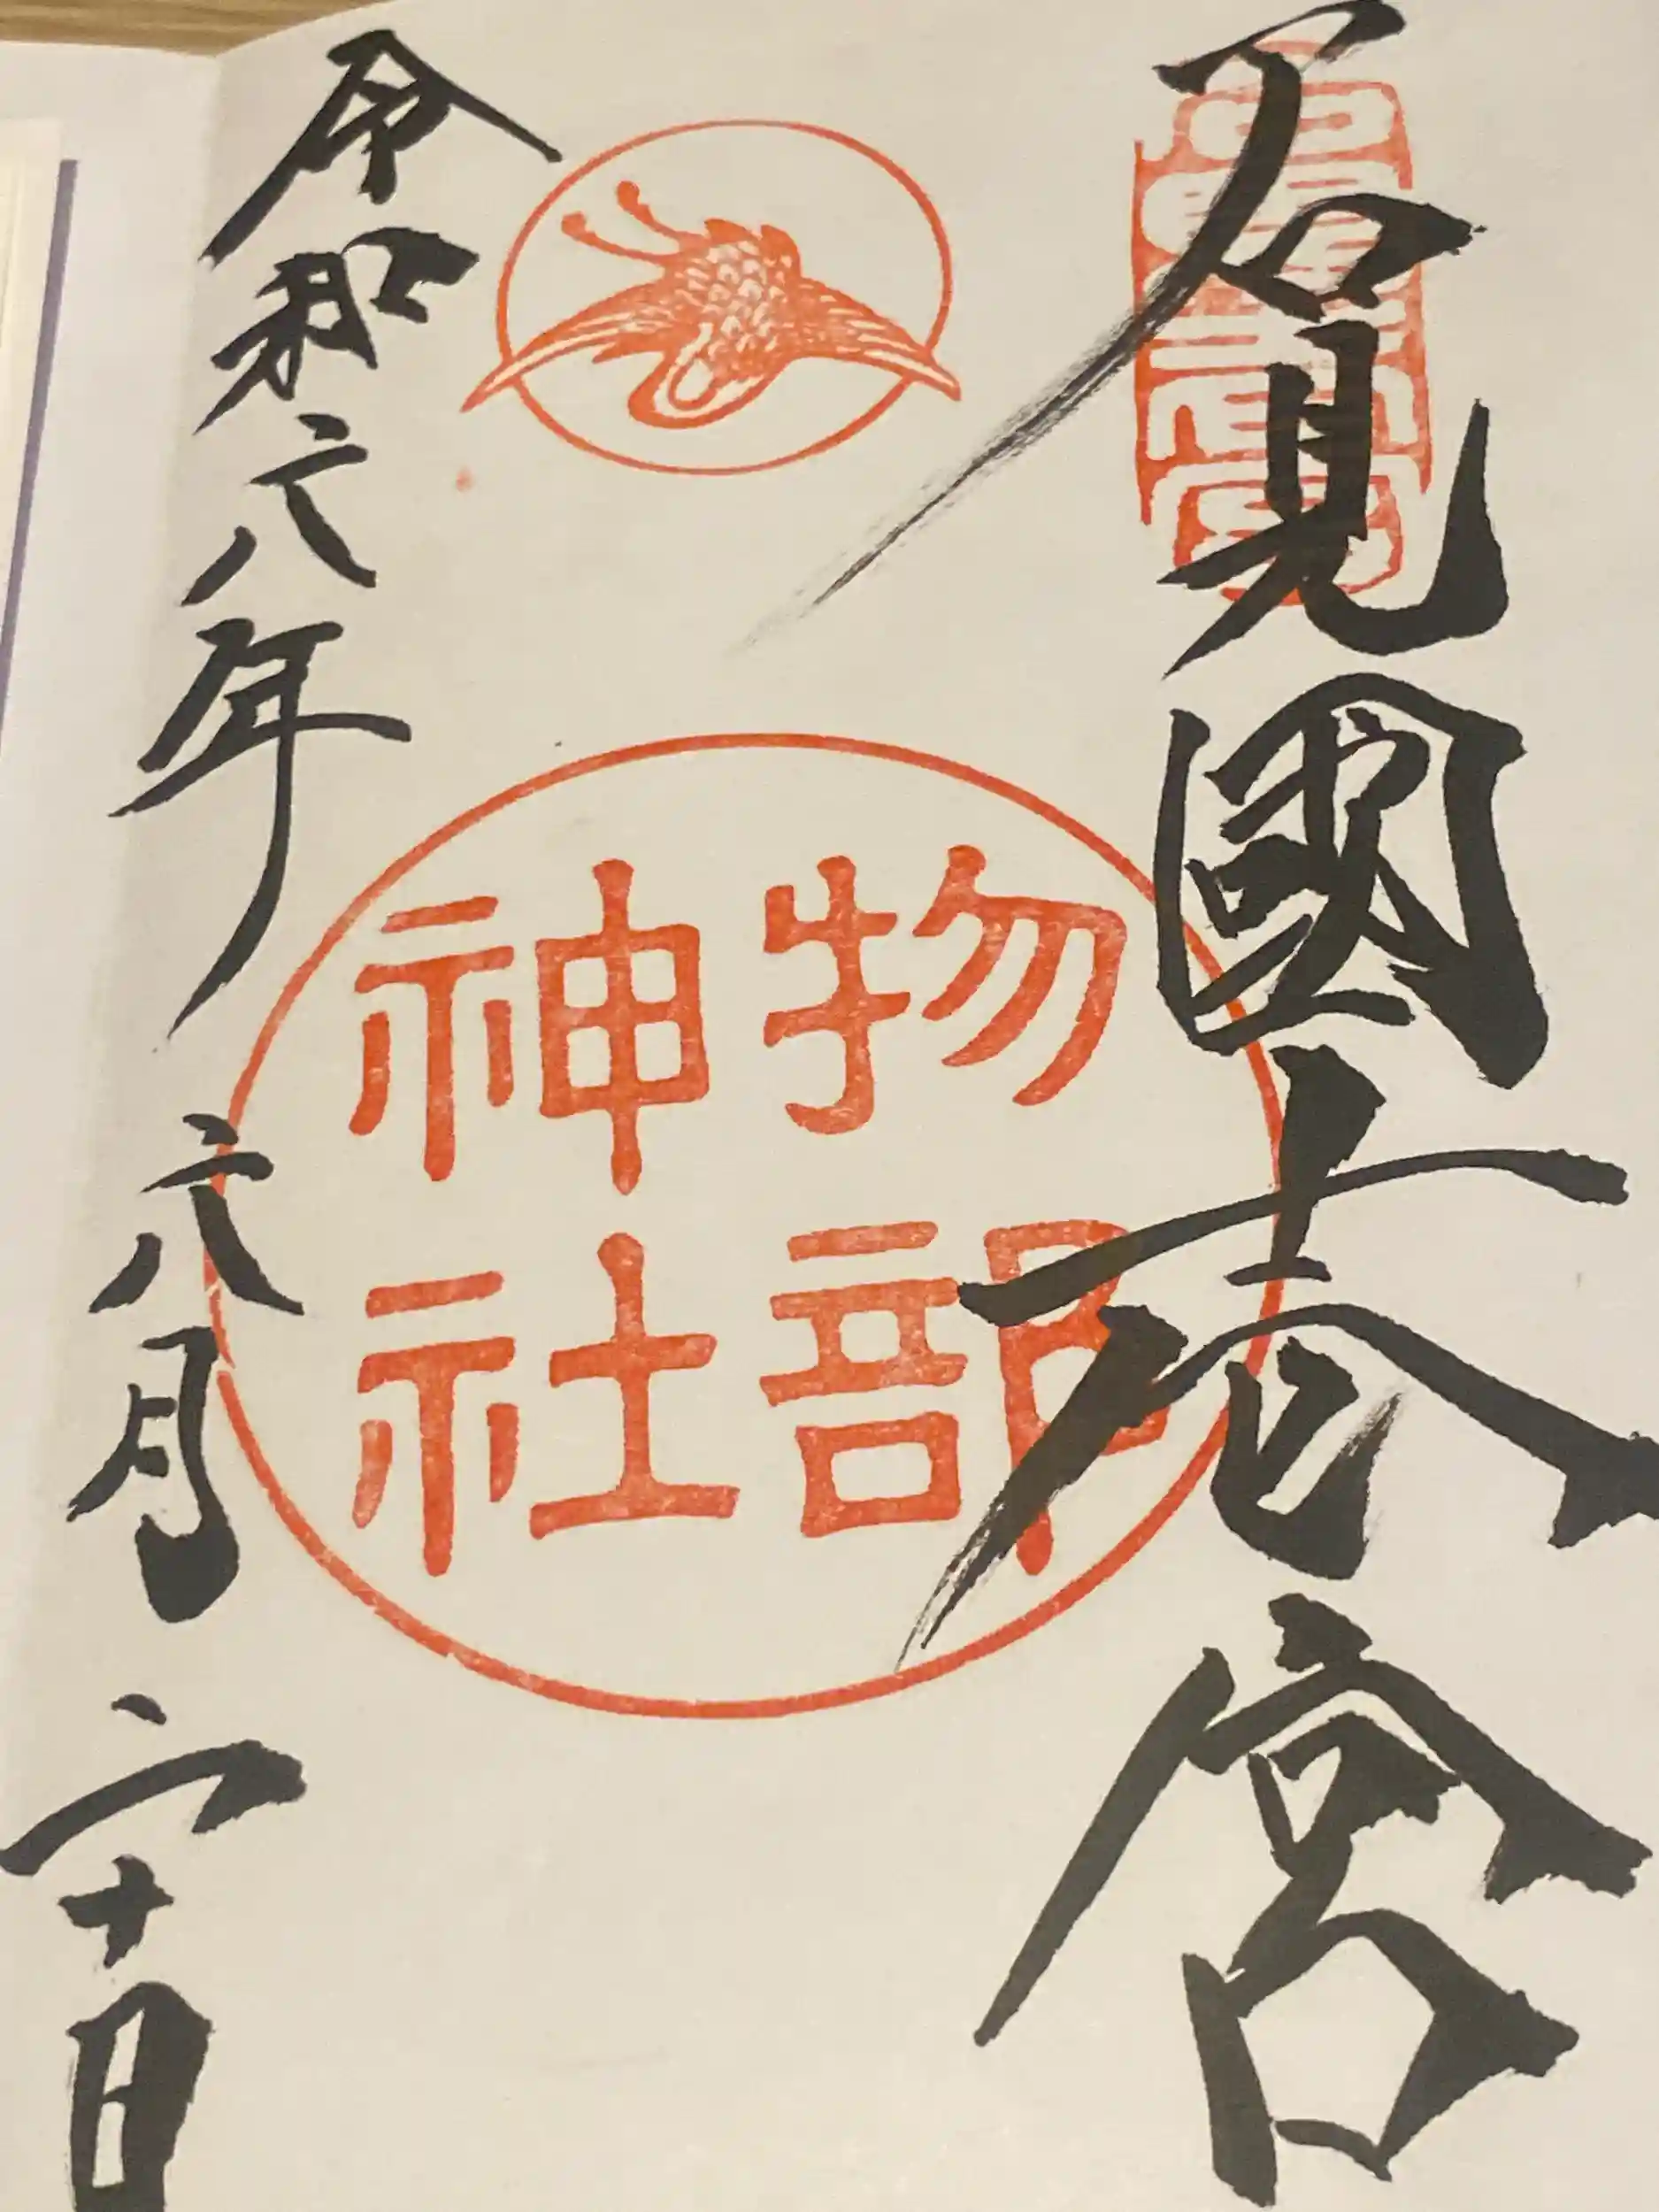 石見國壱宮
物部
神社
令和六年六月二十日